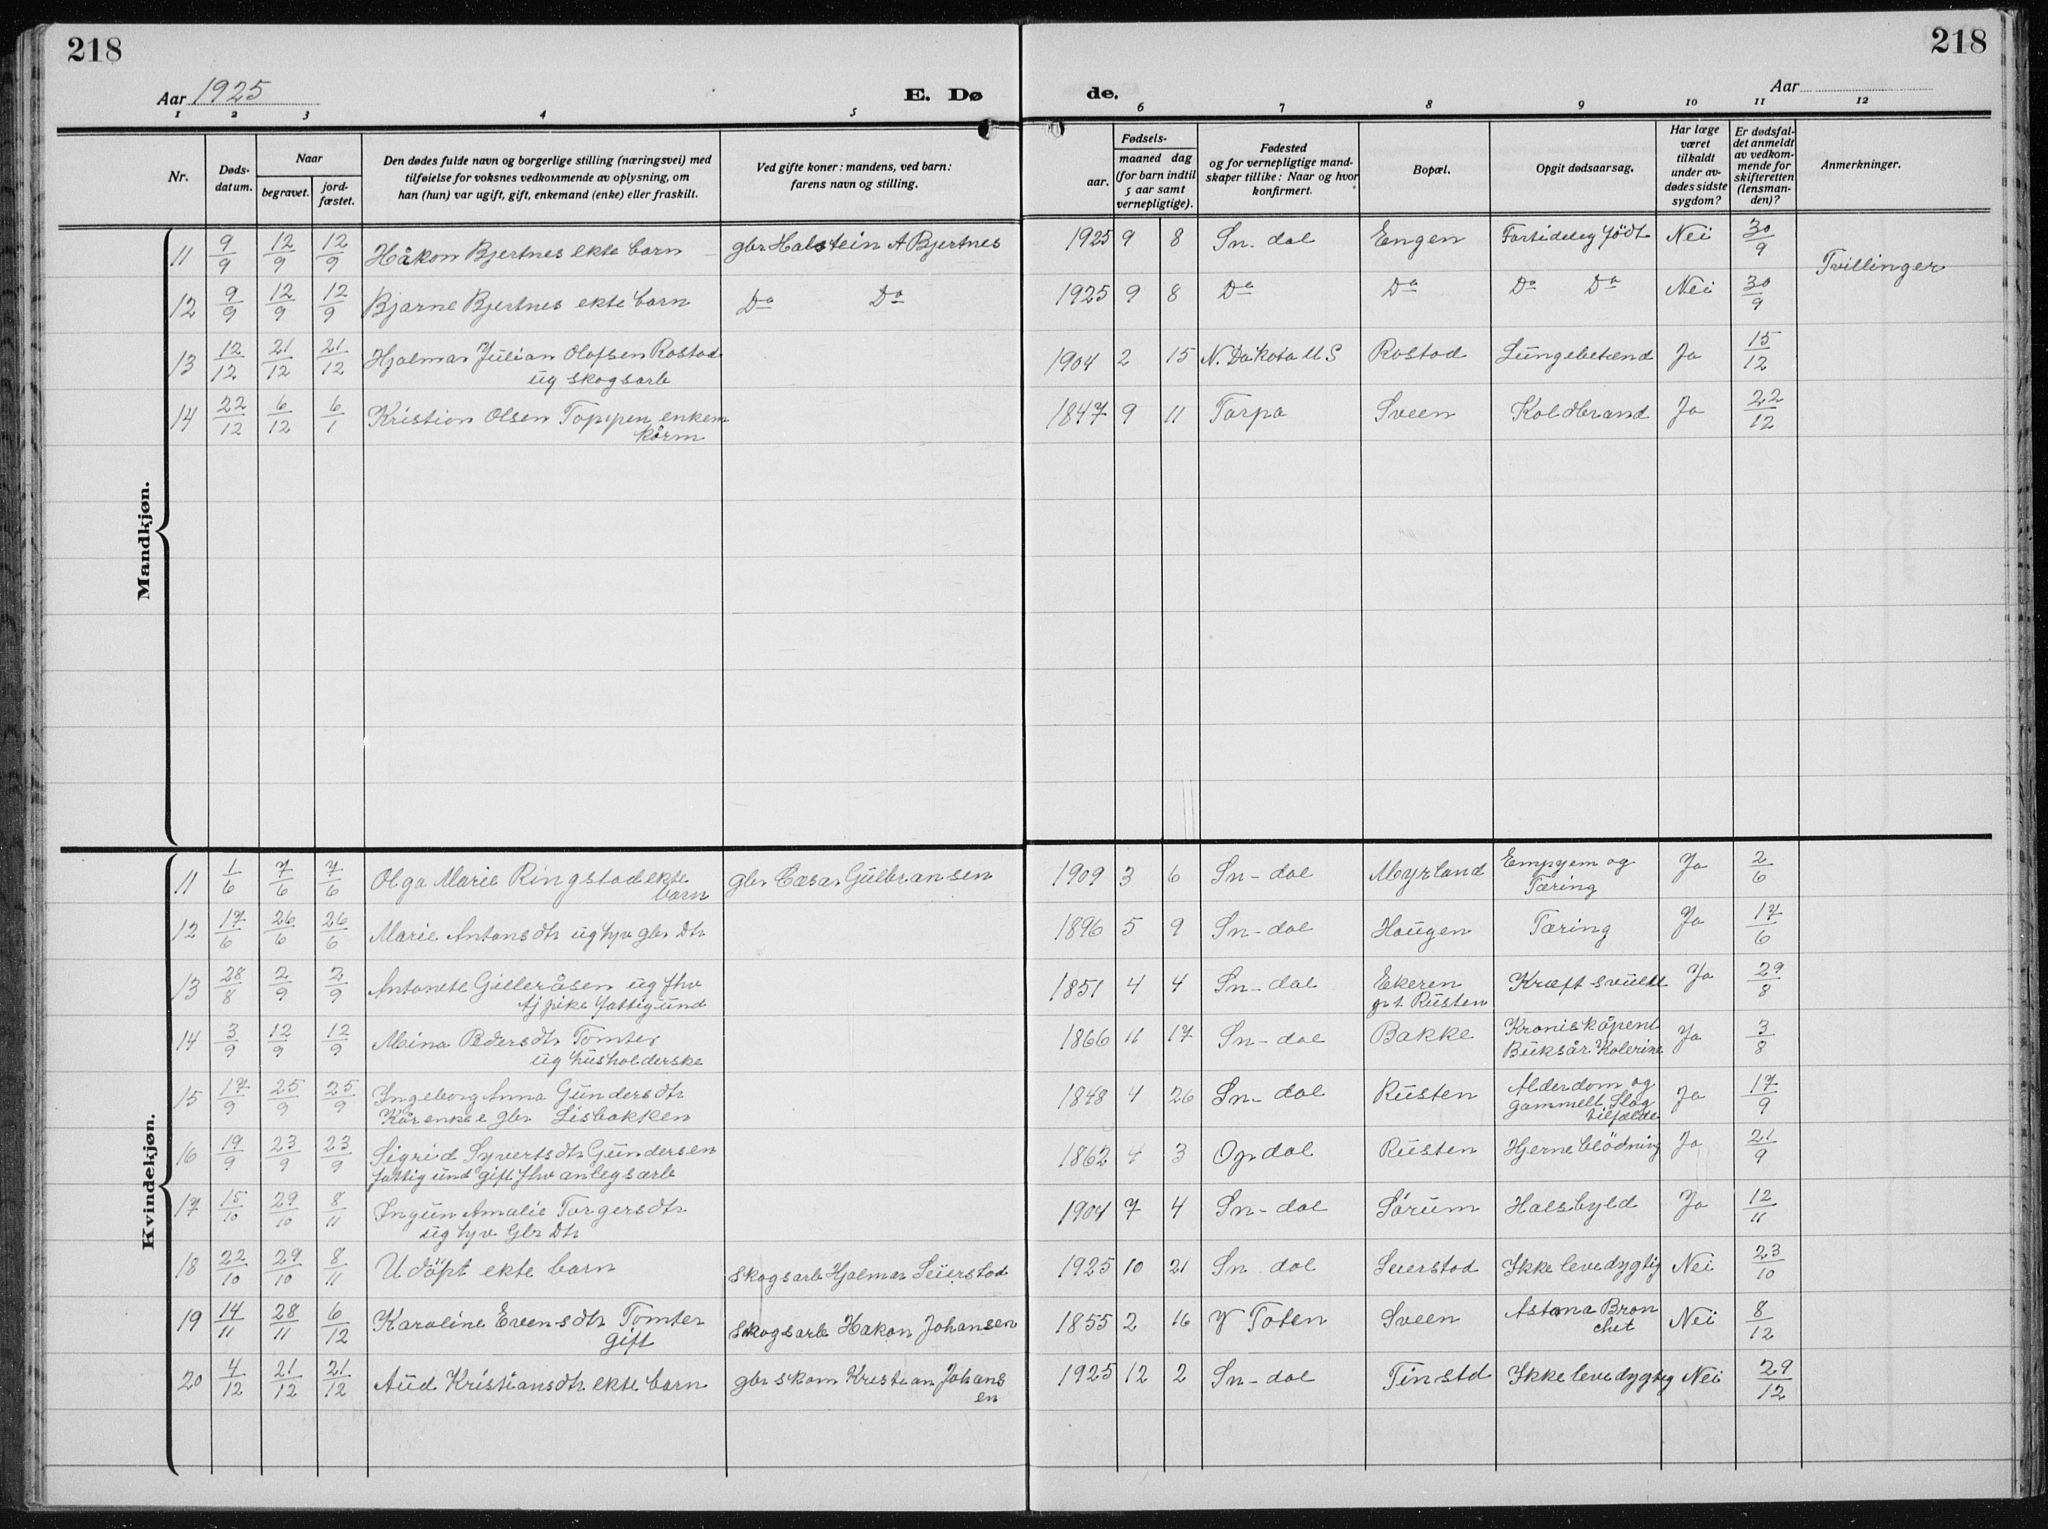 218
218
Aar 1925
E. Dø
de.
Aar
1 2 3 4 5 6 7 8 9 10 11 12
Nr.
Døds-
datum.
Naar
begravet.
jord-
fæstet.
Den dødes fulde navn og borgerlige stilling (næringsvei) med
tilføielse for voksnes vedkommende av oplysning, om
han (hun) var ugift, gift, enkemand (enke) eller fraskilt.
Ved gifte koner: mandens, ved barn:
farens navn og stilling.
Fødsels-
aar.
maaned dag
(for barn indtil
5 aar samt
vernepligtige).
Fødested
og for vernepligtige mand-
skaper tillike: Naar og hvor
konfirmert.
Bopæl.
Opgit dødsaarsag.
Har læge
været
tilkaldt
under av-
dødes sidste
sygdom?
Er dødsfal-
det anmeldt
av vedkom-
mende for
skifteretten
(lensman-
den)?
Anmerkninger.
Mandkjøn.
11 9/9 12/9 12/9 Håkon Bjertnes ekte barn gbr Halstein A Bjertnes 1925 9 8 Sn. dal Engen Fortideleg födt Nei 30/9
Tvillinger
12 9/9 12/9 12/9 Bjarne Bjertnes ekte barn Do Do 1925 9 8 Do Do Do Do Nei 30/9
13 12/12 21/12 21/12 Hjalmar Julian Olafsen Rostad 1904 2 15 N. Dakota U S Rostad Lungebetænd Ja 15/12
ug skogsarb
14 22/12 6/12 6/1 Kristian Olsen Toppen enkem 1847 9 11 Torpa Sveen Koldbrand Ja 22/12
kårm
Kvindekjøn.
11 1/6 7/6 7/6 Olga Marie Ringstad ekte gbr Cæsar Gulbransen 1909 3 6 Sn-dal Myrland Empyem og Ja 2/6
barn Tæring
12 17/6 26/6 26/6 Marie Antonsdtr ug tyv gbr Dtr 1896 5 9 Sn-dal Haugen Tæring Ja 17/6
13 28/8 2/9 2/9 Antonete Gilleråsen ug fhv 1851 4 4 Sn-dal Ekeren Kræftsvulst Ja 29/8
tj pike fattigund p t. Rusten
14 3/9 12/9 12/9 Mina Pedersdtr Tomter 1866 11 17 Sn-dal Bakke Kronisk åpent Ja 3/8
ug husholderske Buksår Kolerine
15 17/9 25/9 25/9 Ingeborg Anna Gundersdtr 1848 4 26 Sn-dal Rusten Alderdom og Ja 17/9
Kårenke e gbr Lisbakken gammelt Slag
tilfælde
16 19/9 23/9 23/9 Sigrid Syvertsdtr Gundersen 1862 4 3 Opdal Rusten Hjerneblödning Ja 21/9
fattigund gift fhv anlegsarb
17 15/10 29/10 8/11 Ingun Amalie Torgersdtr 1904 7 4 Sn-dal Sørum Halsbyld Ja 12/11
ug tyv Gbr Dtr
18 22/10 29/10 8/11 Udöpt ekte barn skogsarb Hjalmar Seierstad 1925 10 21 Sn-dal Seierstad Ikke levedygtig Nei 23/10
19 14/11 28/11 6/12 Karoline Evensdtr Tomter skogsarb Hakon Johansen 1855 2 16 V Toten Sveen Astma Bron Nei 8/12
gift chet
20 4/12 21/12 21/12 Aud Kristiansdtr ekte barn gbr skom Kristian Johans 1925 12 2 Sn-dal Tinstd Ikke levedygtig Nei 29/12
en